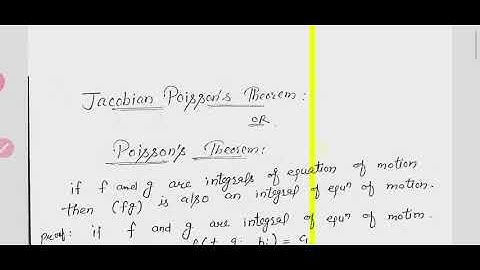 Jacobian Poisson's Theorem :
OR
Poisson's Theorem :
if f and g are integrals of equation of motion
then (fg) is also an integral of equⁿ of motion.
proof: if f and g are integral of equⁿ of motion.
f(t, qi, pi) = C₁